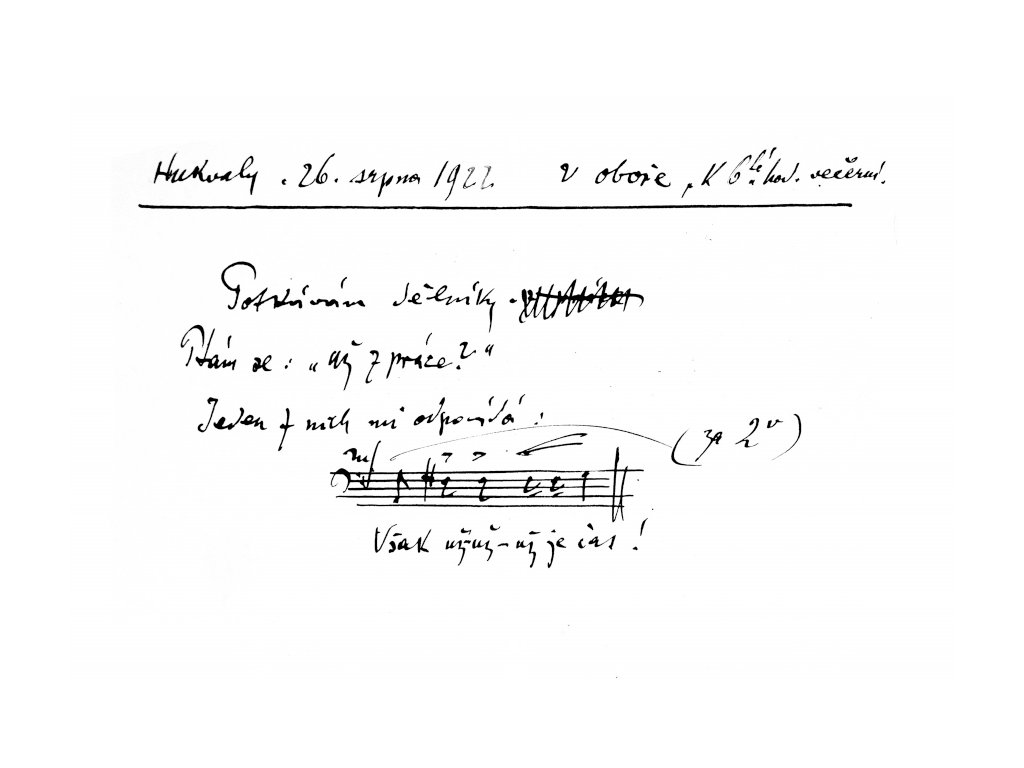 Hukvaly. 26. srpna 1922. V oboře, K 6té hod. večerní.
Potkávám dělníky.
Ptám se: „Už z práce?“
Jeden z nich mi odpovídá:
(za 2v)
Však už-už-už je čas!